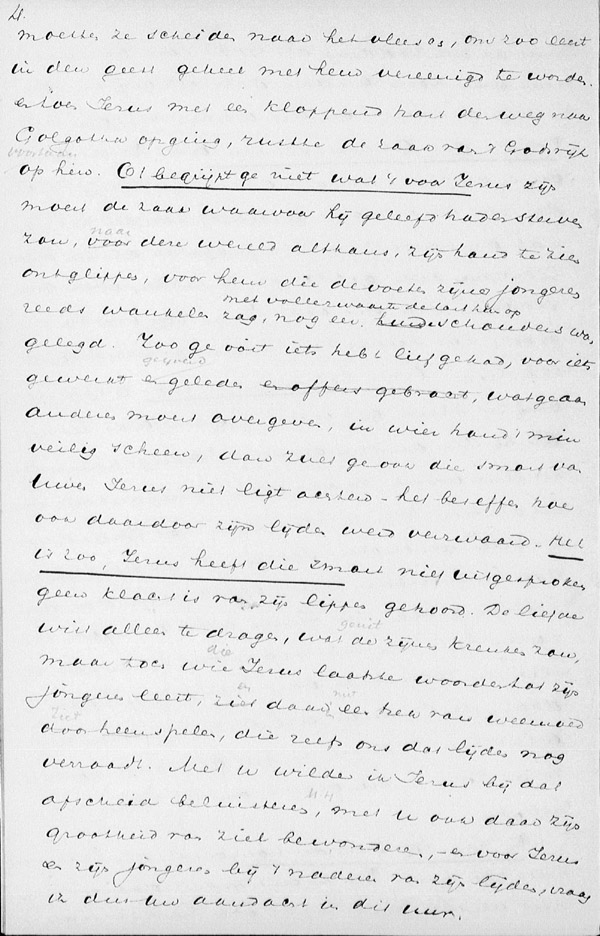 4.
moesten ze scheiden naar het vleesch, om zoo eerst
in den geest geheel met hem vereenigd te worden.
en toen Jezus met een kloppend hart den weg naar
Golgotha opging, rustte de zaak van 't Godsrijk
op hem. Of begrijpt ge niet wat 't voor Jezus zijn
moest de zaak waarvoor hij geleefd had en sterven
zou, voor naar deze wereld althans, zijn hand te zien
ontglippen, voor hem die de voeten zijner jongeren
reeds wankelen zag, nog eer met vollen zwaarte de last hun op schouders was
gelegd. Zoo ge ooit iets hebt liefgehad, voor iets
gewerkt en geleden en offers gebracht, wat ge aan
anderen moest overgeven, in wier hand 't min
veilig scheen, dan zult ge ook die smart van
Uwen Jezus niet ligt achten - het beseffen hoe
ook daardoor zijn lijden werd verzwaard. Het
is zoo, Jezus heeft die smart niet uitgesproken
geen klacht is van zijn lippen gehoord. De liefde
wist alleen te dragen, wat de zijnen krenken zou,
maar toch wie die Jezus laatste woorden tot zijn
jongeren leest, ziet daar een trek van weemoed
doorheen spelen, die zelfs ons dat lijden nog
verraadt. Met U wilde ik Jezus bij dat
afscheid beluisteren, met U ook daar zijn
grootheid van ziel bewonderen, - en voor Jezus
en zijn jongeren bij 't naderen van zijn lijden, vraag
ik dus uw aandacht in dit uur.